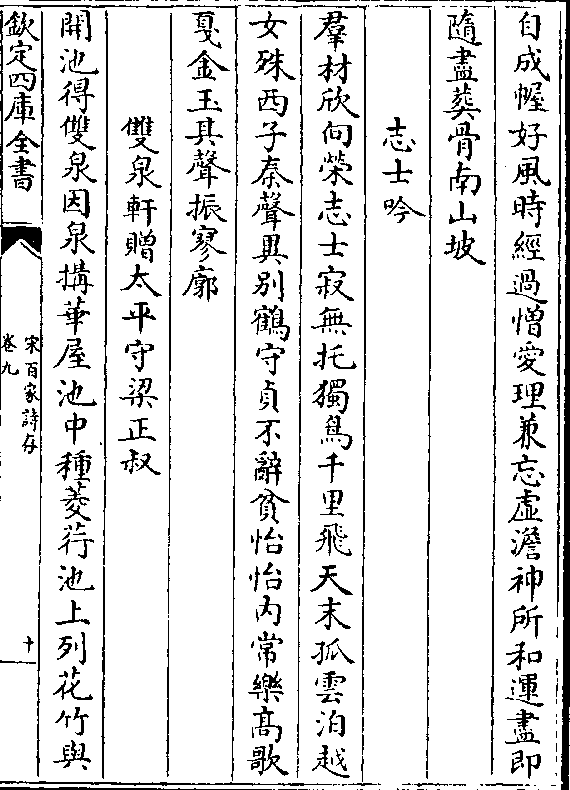 自成幄好風時經過憎愛理兼忘虛澹神所和運盡即
隨盡葬骨南山坡
志士吟
羣材欣向榮志士寂無托獨鳥千里飛天末孤雲泊越
女殊西子秦聲異別鶴守貞不辭貧怡怡内常樂髙歌
戛金玉其聲振寥廓
雙泉軒贈太平守梁正叔
開池得雙泉因泉搆華屋池中種菱荇池上列花竹與
欽定四庫全書
宋百家詩存
卷九
十